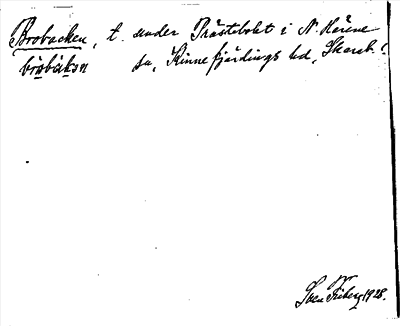 Brobacken, t. under Prästebolet i N. Härene
brobákən sn, Kinnefjärdings hd, Skarab. l.
Sven Friberg 1928.